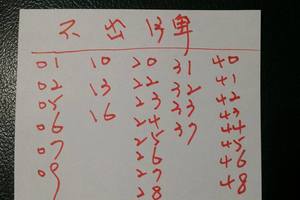 不 出
01 10 20 31 40
02 13 22 32 41
05 16 23 33 42
06 24 37 43
07 25 44
09 26 45
27 46
28 48